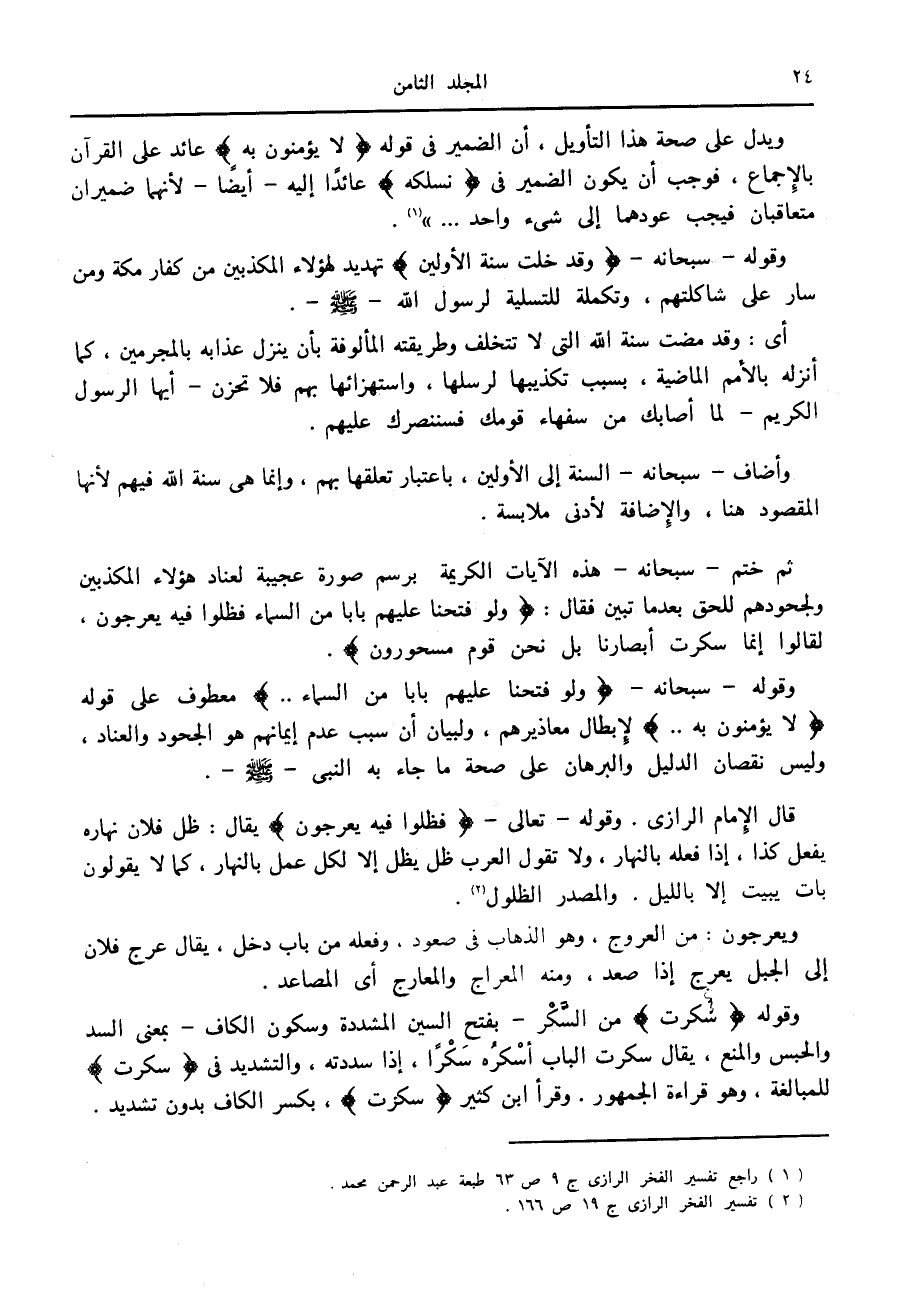 ٢٤
المجلد الثامن
ويدل على صحة هذا التأويل ، أن الضمير فى قوله ﴿ لا يؤمنون به ﴾ عائد على القرآن
بالإِجماع ، فوجب أن يكون الضمير فى ﴿ نسلكه ﴾ عائدًا إليه – أيضًا – لأنهما ضميران
متعاقبان فيجب عودهما إلى شىء واحد ... »(١) .
وقوله – سبحانه – ﴿ وقد خلت سنة الأولين ﴾ تهديد لهؤلاء المكذبين من كفار مكة ومن
سار على شاكلتهم ، وتكملة للتسلية لرسول الله – ﷺ – .
أى : وقد مضت سنة الله التى لا تتخلف وطريقته المألوفة بأن ينزل عذابه بالمجرمين ، كما
أنزله بالأمم الماضية ، بسبب تكذيبها لرسلها ، واستهزائها بهم فلا تحزن – أيها الرسول
الكريم – لما أصابك من سفهاء قومك فسننصرك عليهم .
وأضاف – سبحانه – السنة إلى الأولين ، باعتبار تعلقها بهم ، وإنما هى سنة الله فيهم لأنها
المقصود هنا ، والإِضافة لأدنى ملابسة .
ثم ختم – سبحانه – هذه الآيات الكريمة برسم صورة عجيبة لعناد هؤلاء المكذبين
ولجحودهم للحق بعدما تبين فقال : ﴿ ولو فتحنا عليهم بابا من السماء فظلوا فيه يعرجون ،
لقالوا إنما سكرت أبصارنا بل نحن قوم مسحورون ﴾ .
وقوله – سبحانه – ﴿ ولو فتحنا عليهم بابا من السماء .. ﴾ معطوف على قوله
﴿ لا يؤمنون به .. ﴾ لإِبطال معاذيرهم ، ولبيان أن سبب عدم إيمانهم هو الجحود والعناد ،
وليس نقصان الدليل والبرهان على صحة ما جاء به النبى – ﷺ – .
قال الإِمام الرازى . وقوله – تعالى – ﴿ فظلوا فيه يعرجون ﴾ يقال : ظل فلان نهاره
يفعل كذا ، إذا فعله بالنهار ، ولا تقول العرب ظل يظل إلا لكل عمل بالنهار ، كما لا يقولون
بات يبيت إلا بالليل . والمصدر الظلول(٢) .
ويعرجون : من العروج ، وهو الذهاب فى صعود ، وفعله من باب دخل ، يقال عرج فلان
إلى الجبل يعرج إذا صعد ، ومنه المعراج والمعارج أى المصاعد .
وقوله ﴿ سُكرت ﴾ من السَّكْر – بفتح السين المشددة وسكون الكاف – بمعنى السد
والحبس والمنع ، يقال سكرت الباب أسْكرُه سَكْرًا ، إذا سددته ، والتشديد فى ﴿ سكرت ﴾
للمبالغة ، وهو قراءة الجمهور . وقرأ ابن كثير ﴿ سكرت ﴾ ، بكسر الكاف بدون تشديد .
( ١ ) راجع تفسير الفخر الرازى ج ٩ ص ٦٣ طبعة عبد الرحمن محمد .
( ٢ ) تفسير الفخر الرازى ج ١٩ ص ١٦٦ .